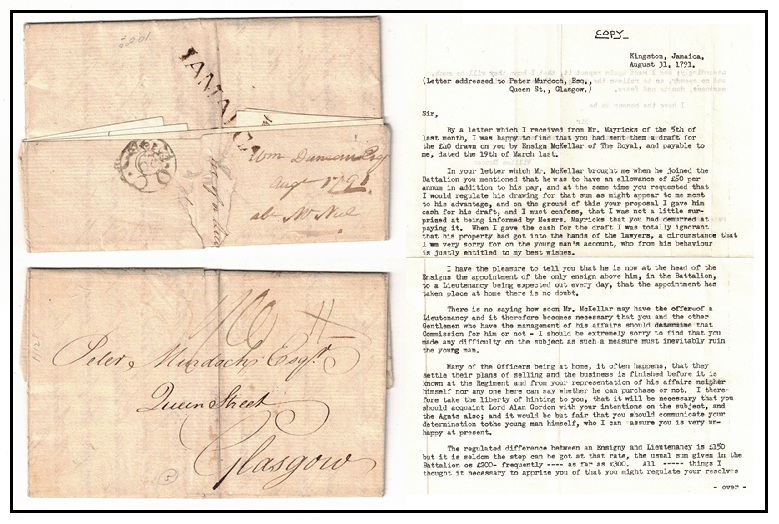 JAMAICA
Wm Duncan Esqr
Augt 1791
ab Mr Mc
Peter Murdoch Esqr.
Queen Street
Glasgow
COPY
Kingston, Jamaica.
August 31, 1791.
(Letter addressed to Peter Murdoch, Esq.,
Queen St., Glasgow.)
Sir,
By a letter which I received from Mr. Mayricks of the 5th of
last month, I was happy to find that you had sent them a draft for
the £20 drawn on you by Ensign McKellar of The Royal, and payable to
me, dated the 19th of March last.
In your letter which Mr. McKellar brought me when he joined the
Battalion you mentioned that he was to have an allowance of £50 per
annum in addition to his pay, and at the same time you requested that
I would regulate his drawing for that sum as might appear to me most
to his advantage, and on the ground of this your proposal I gave him
cash for his draft, and I must confess, that I was not a little sur-
prized at being informed by Messrs. Mayricks that you had demurred at
paying it. When I gave the cash for the draft I was totally ignorant
that his property had got into the hands of the lawyers, a circumstance that
I am very sorry for on the young man's account, who from his behaviour
is justly entitled to my best wishes.
I have the pleasure to tell you that he is now at the head of the
Ensigns the appointment of the only ensign above him, in the Battalion,
to a Lieutenancy being expected out every day, that the appointment has
taken place at home there is no doubt.
There is no saying how soon Mr. McKellar may have the offerof a
Lieutenancy and it therefore becomes necessary that you and the other
Gentlemen who have the management of his affairs should determine that
Commission for him or not - I should be extremely sorry to find that you
made any difficulty on the subject as such a measure must inevitably ruin
the young man.
Many of the Officers being at home, it often happens, that they
settle their plans of selling and the business is finished before it is
known at the Regiment and from your representation of his affairs neither
himself nor any one here can say whether he can purchase or not. I there-
fore take the liberty of hinting to you, that it will be necessary that you
should acquaint Lord Alan Gordon with your intentions on the subject, and
the Agats also; and it would be but fair that you should communicate your
determination tothe young man himself, who I can assure you is very un-
happy at present.
The regulated difference between an Ensigny and Lieutenancy is £150
but it is seldom the step can be got at that rate, the usual sum given in the
Battalion os £200- frequently ---- as far as £300. All ----- things I
thought it necessary to apprize of you that you might regulate your resolves
- over -